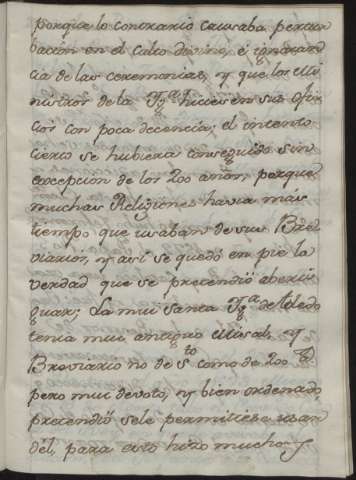 porque lo contrario causaba pertur
bacion en el culto divino, é ignoran
cia de las ceremonias, y que los Mi
nistros de la Ygª hiciesen sus ofi
cios con poca decencia; el intento
cierto se hubiera conseguido sin
excepcion de los 200 años, porque
muchas Religiones havia mas
tiempo que usaban de sus Bre
viarios, y asi se quedó en pie la
verdad que se pretendió aberi
guar; La mui Santa Ygª de toledo
tenia mui antiguo Misal, y
Breviario no de Sto como de 200 aˢ
pero mui devoto, y bien ordenado,
pretendió se le permitiese usar
dél, para esto hizo muchos